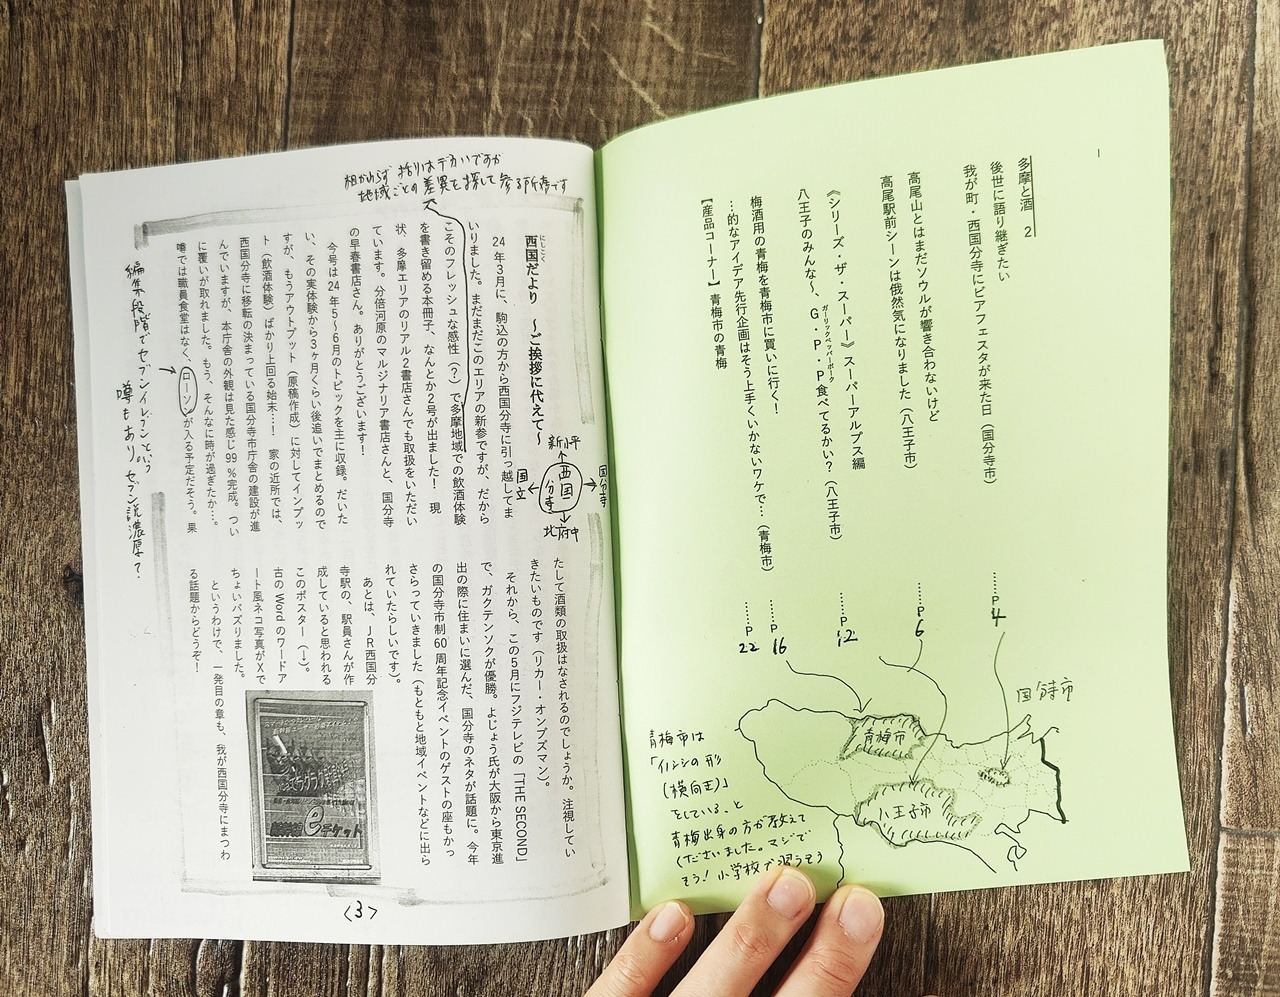 多摩と酒 2
後世に語り継ぎたい
我が町・西国分寺にビアフェスタが来た日（国分寺市）
……P 4
高尾山とはまだソウルが響き合わないけど
高尾駅前シーンは俄然気になりました（八王子市）
……P 6
《シリーズ・ザ・スーパー》スーパーアルプス編
八王子のみんな〜、G・P・P食べてるかい？（八王子市）
ガーリックペッパーポーク
……P 12
梅酒用の青梅を青梅市に買いに行く！
…的なアイデア先行企画はそう上手くいかないワケで…（青梅市）
……P 16
【産品コーナー】青梅市の青梅
……P 22
国分寺市
青梅市
八王子市
青梅市は
「イノシシの形
（横向き）」
をしている、と
青梅出身の方が教えて
くださいました。マジで
そう！小学校で習うそう
相かわらず括りはデカいですが
地域ごとの差異を探して参る所存です
西国だより 〜ご挨拶に代えて〜
にしこく
24年3月に、駒込の方から西国分寺に引っ越してま
いりました。まだまだこのエリアの新参ですが、だから
こそのフレッシュな感性（？）で多摩地域での飲酒体験
を書き留める本冊子、なんとか2号が出ました！ 現
状、多摩エリアのリアル2書店さんでも取扱をいただい
ています。分倍河原のマルジナリア書店さんと、国分寺
の早春書店さん。ありがとうございます！
今号は24年5〜6月のトピックを主に収録。だいた
い、その実体験から3ヶ月くらい後追いでまとめるので
すが、もうアウトプット（原稿作成）に対してインプッ
ト（飲酒体験）ばかり上回る始末…！ 家の近所では、
西国分寺に移転の決まっている国分寺市庁舎の建設が進
んでいますが、本庁舎の外観は見た感じ99％完成。つい
に覆いが取れました。もう、そんなに時が過ぎたか…。
噂では職員食堂はなく、ローソンが入る予定だそう。果
新小平
国分寺
西国分寺
国立
北府中
編集段階でセブンイレブンという
噂もあり。セブン説濃厚？
たして酒類の取扱はなされるのでしょうか。注視してい
きたいものです（リカー・オンブズマン）。
それから、この5月にフジテレビの「THE SECOND」
で、ガクテンソクが優勝。よじょう氏が大阪から東京進
出の際に住まいに選んだ、国分寺のネタが話題に。今年
の国分寺市制60周年記念イベントのゲストの座もかっ
さらっていきました（もともと地域イベントなどに出ら
れていたらしいです）。
あとは、JR西国分
寺駅の、駅員さんが作
成していると思われる
このポスター（↓）。
古のWordのワードア
ート風ネコ写真がXで
ちょいバズりました。
というわけで、一発目の章も、我が西国分寺にまつわ
る話題からどうぞ！
eチケット
〈3〉